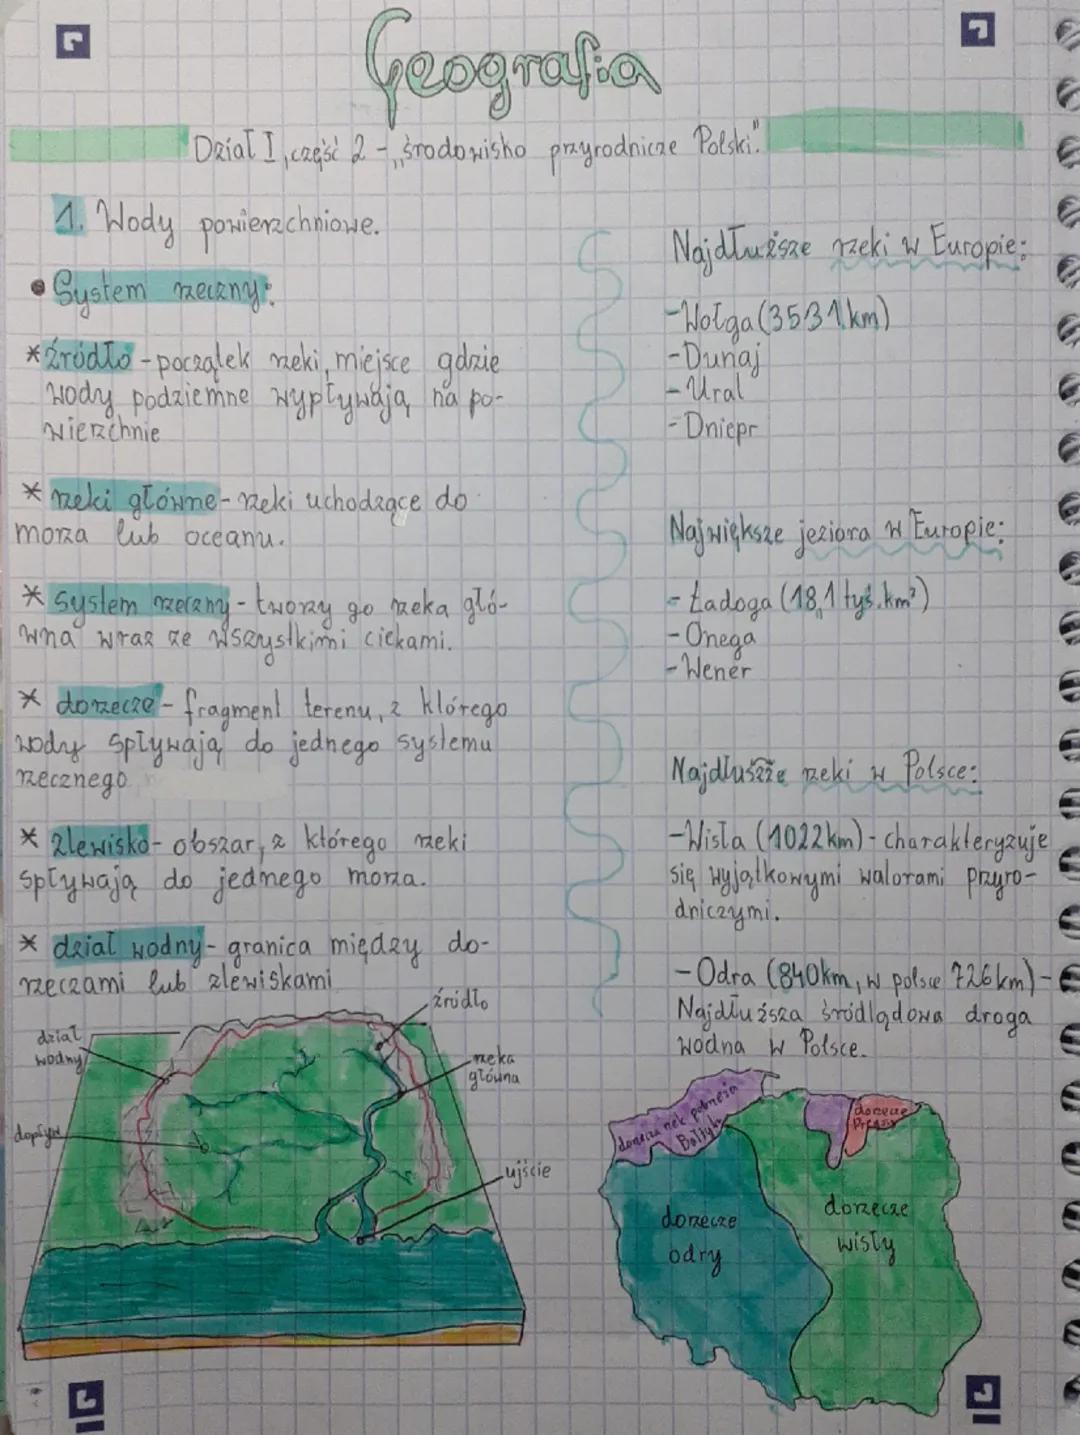 Geografia
Dział I, część 2 - „środowisko przyrodnicze Polski."
1. Wody powierzchniowe.
• System rzeczny:
* źródło - początek rzeki, miejsce gdzie
wody podziemne wypływają na po-
wierzchnie
* rzeki główne - rzeki uchodzące do
morza lub oceanu.
* system rzeczny - tworzy go rzeka głó-
wna wraz ze wszystkimi ciekami.
* dorzecze - fragment terenu, z którego
wody spływają do jednego systemu
rzecznego
* zlewisko - obszar, z którego rzeki
spływają do jednego morza.
* dział wodny - granica między do-
rzeczami lub zlewiskami
dział
wodny
dopływ
źródło
rzeka
główna
ujście
Najdłuższe rzeki w Europie:
- Wołga (3531km)
- Dunaj
- Ural
- Dniepr
Największe jeziora w Europie:
- Ładoga (18,1 tyś. km²)
- Onega
- Wener
Najdłuższe rzeki w Polsce:
- Wisła (1022km) - charakteryzuje
się wyjątkowymi walorami przyro-
dniczymi.
- Odra (840km, w polsce 726km) -
Najdłuższa śródlądowa droga
wodna w Polsce.
dorzecza rzek pobrzeża
Bałtyku
dorzecze
Pregoły
dorzecze
odry
dorzecze
wisły